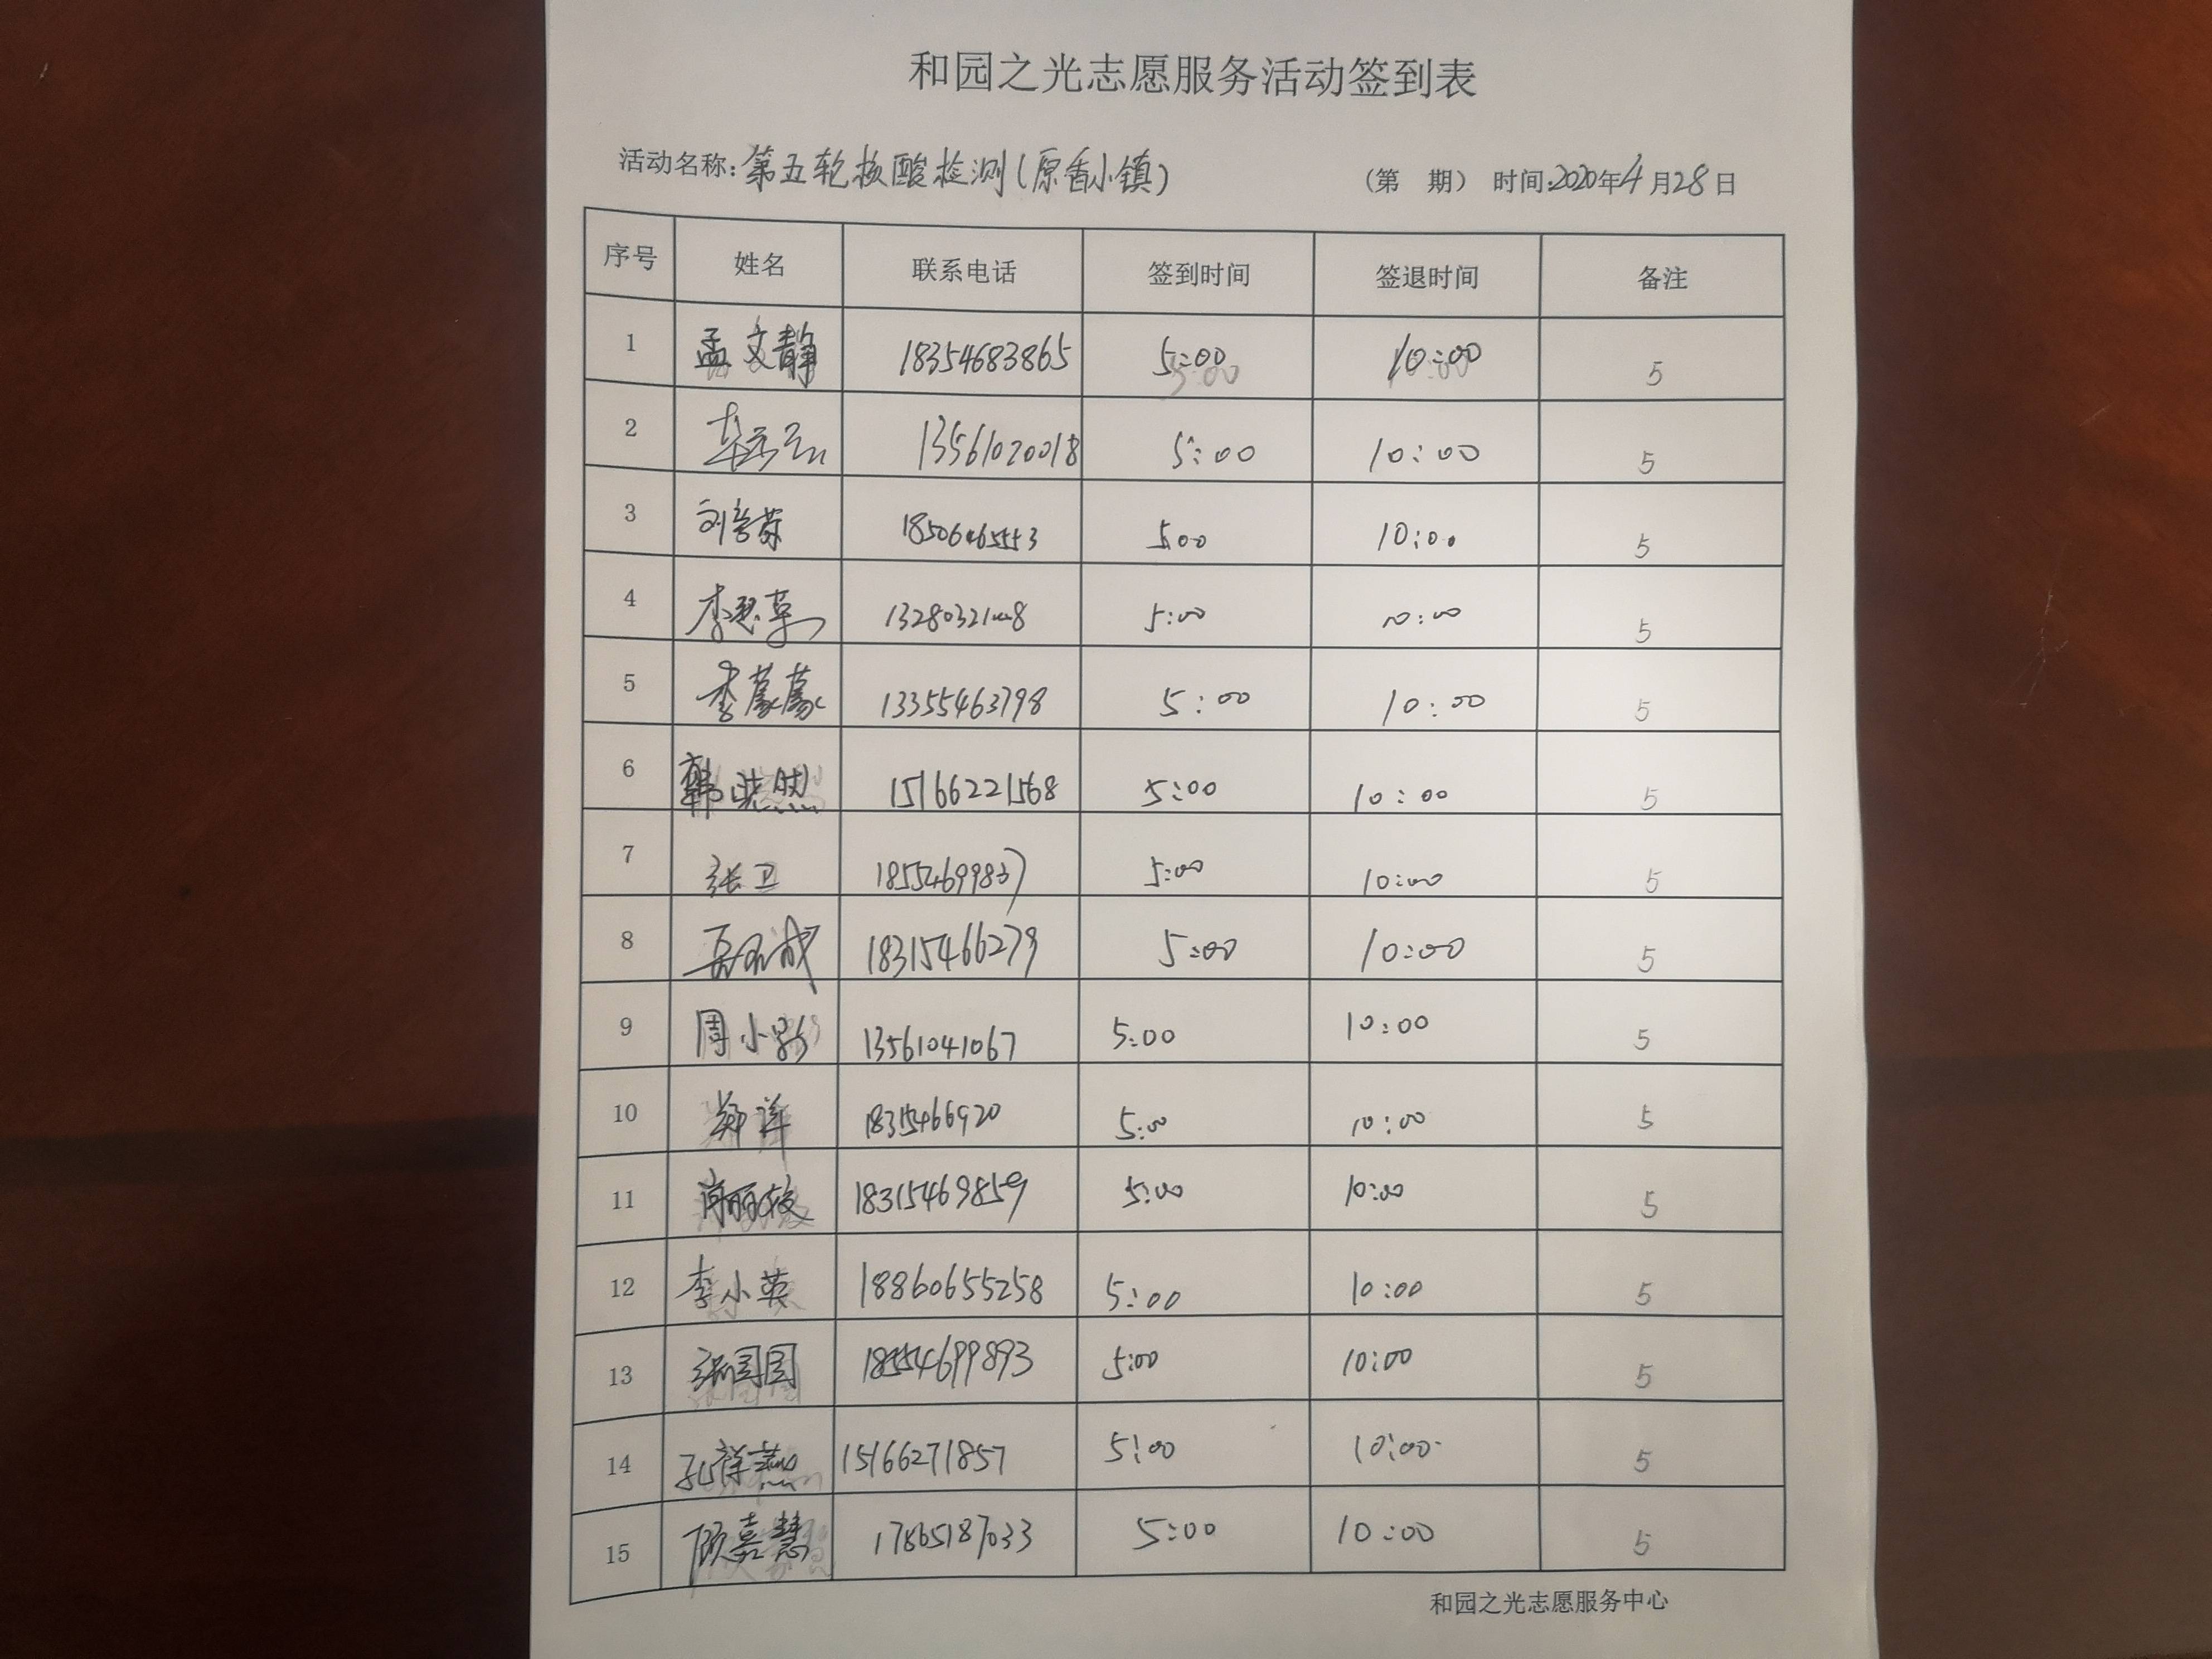 和园之光志愿服务活动签到表
活动名称:第五轮核酸检测(原香小镇) (第 期) 时间:2020年4月28日
序号 姓名 联系电话 签到时间 签退时间 备注
1 孟文静 18354683865 5:00 10:00 5
2 13561020018 5:00 10:00 5
3 18506465553 5:00 10:00 5
4 5:00 10:00 5
5 李蒙蒙 13355463798 5:00 10:00 5
6 韩晓燃 15166221568 5:00 10:00 5
7 张卫 18554699837 5:00 10:00 5
8 18315466279 5:00 10:00 5
9 周小彭 13561041067 5:00 10:00 5
10 郑洋 18315466920 5:00 10:00 5
11 18315469859 5:00 10:00 5
12 李小英 18860655258 5:00 10:00 5
13 张园园 18554699893 5:00 10:00 5
14 孔祥燕 15166271857 5:00 10:00 5
15 顾嘉慧 17865187033 5:00 10:00 5
和园之光志愿服务中心